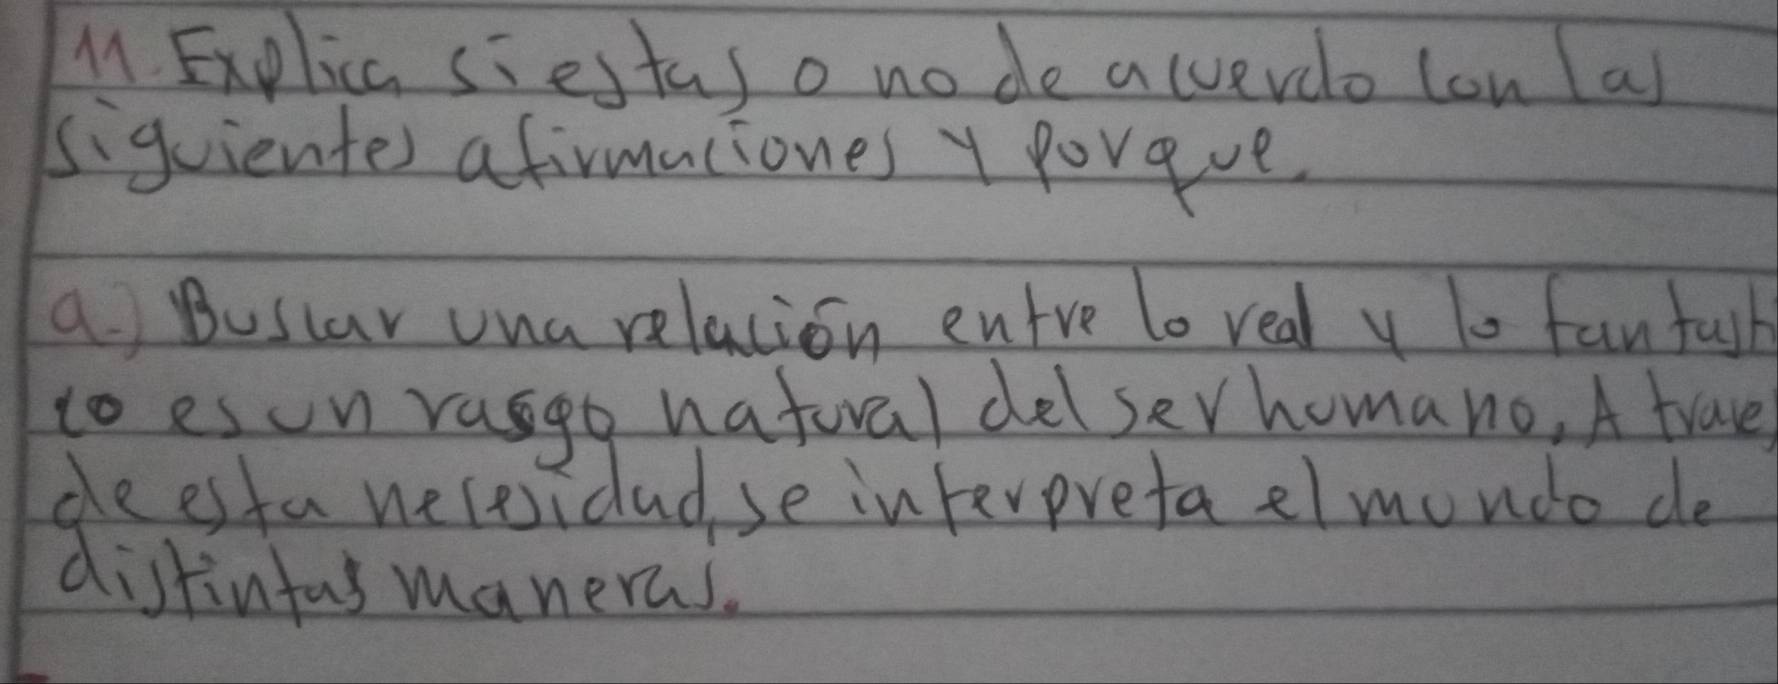 11. Explica si estas o no de acuerdo con las
siguientes afirmaciones y porque.
a.) Buscar una relación entre lo real y lo fantasti
co es un rasgo natural del ser humano. A traves
de esta necesidad, se interpreta el mundo de
distintas maneras.